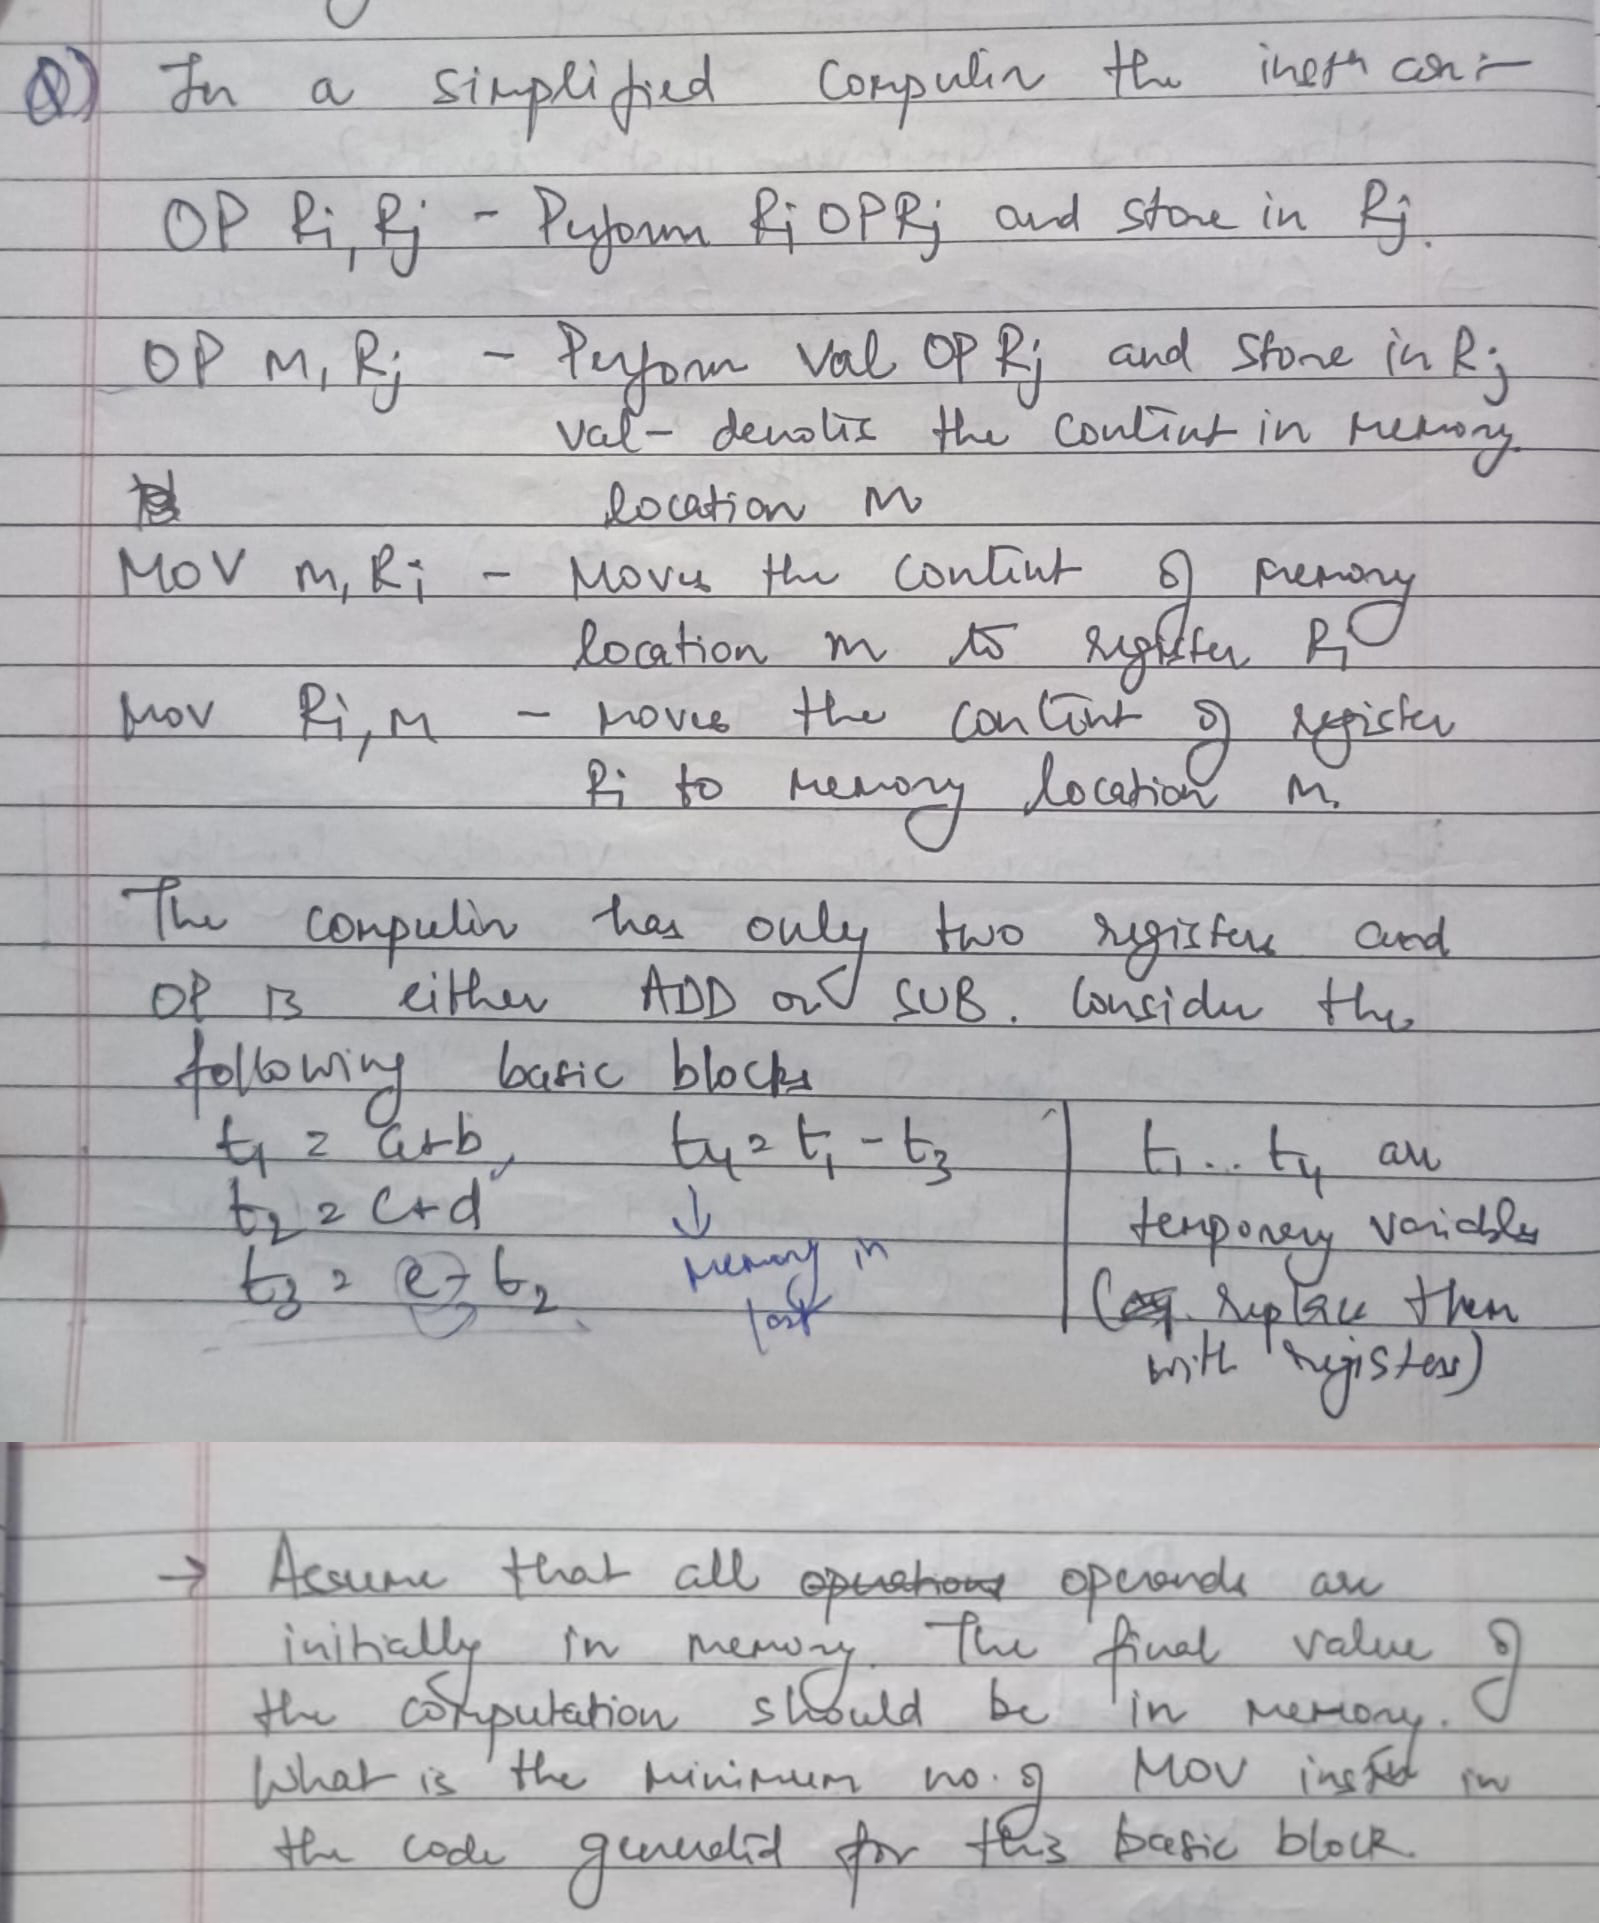 Q) In a simplified computer the instn are :-
OP Ri, Rj - Perform Ri OP Rj and store in Rj.
OP M, Rj - Perform val OP Rj and store in Rj
val - denotes the content in memory
location M
MOV m, Ri - Moves the content of memory
location m to register Ri
Mov Ri, M - moves the content of register
Ri to memory location M.
The computer has only two registers and
OP is either ADD or SUB. Consider the
following basic blocks
t1 = a+b, t4 = t1 - t3 t1 ... t4 are
t2 = c+d ↓ temporary variables
t3 = e - t2 Memory in last ( replace them
with registers)
→ Assume that all operands are
initially in memory. The final value of
the computation should be in memory.
What is the minimum no. of MOV instn in
the code generated for this basic block.